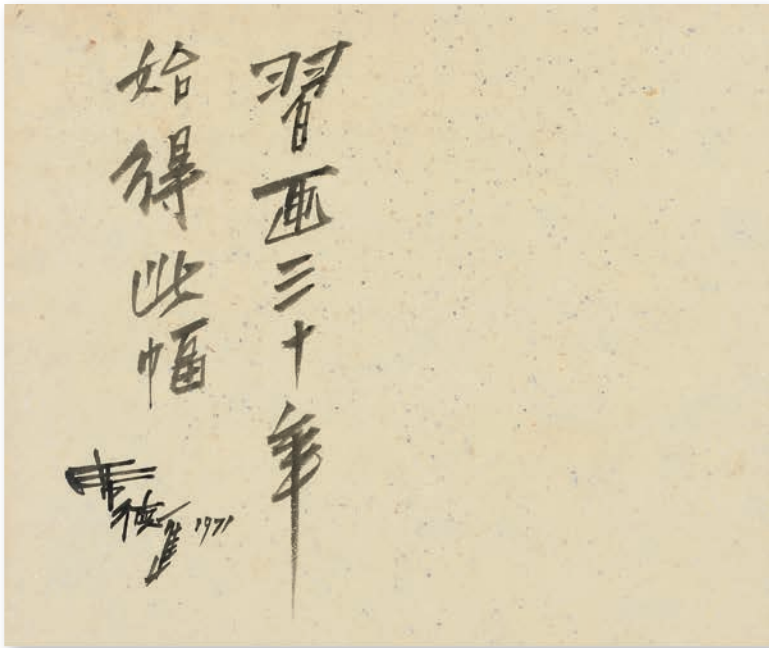 習画三十年
始得此幅
席德進 1971